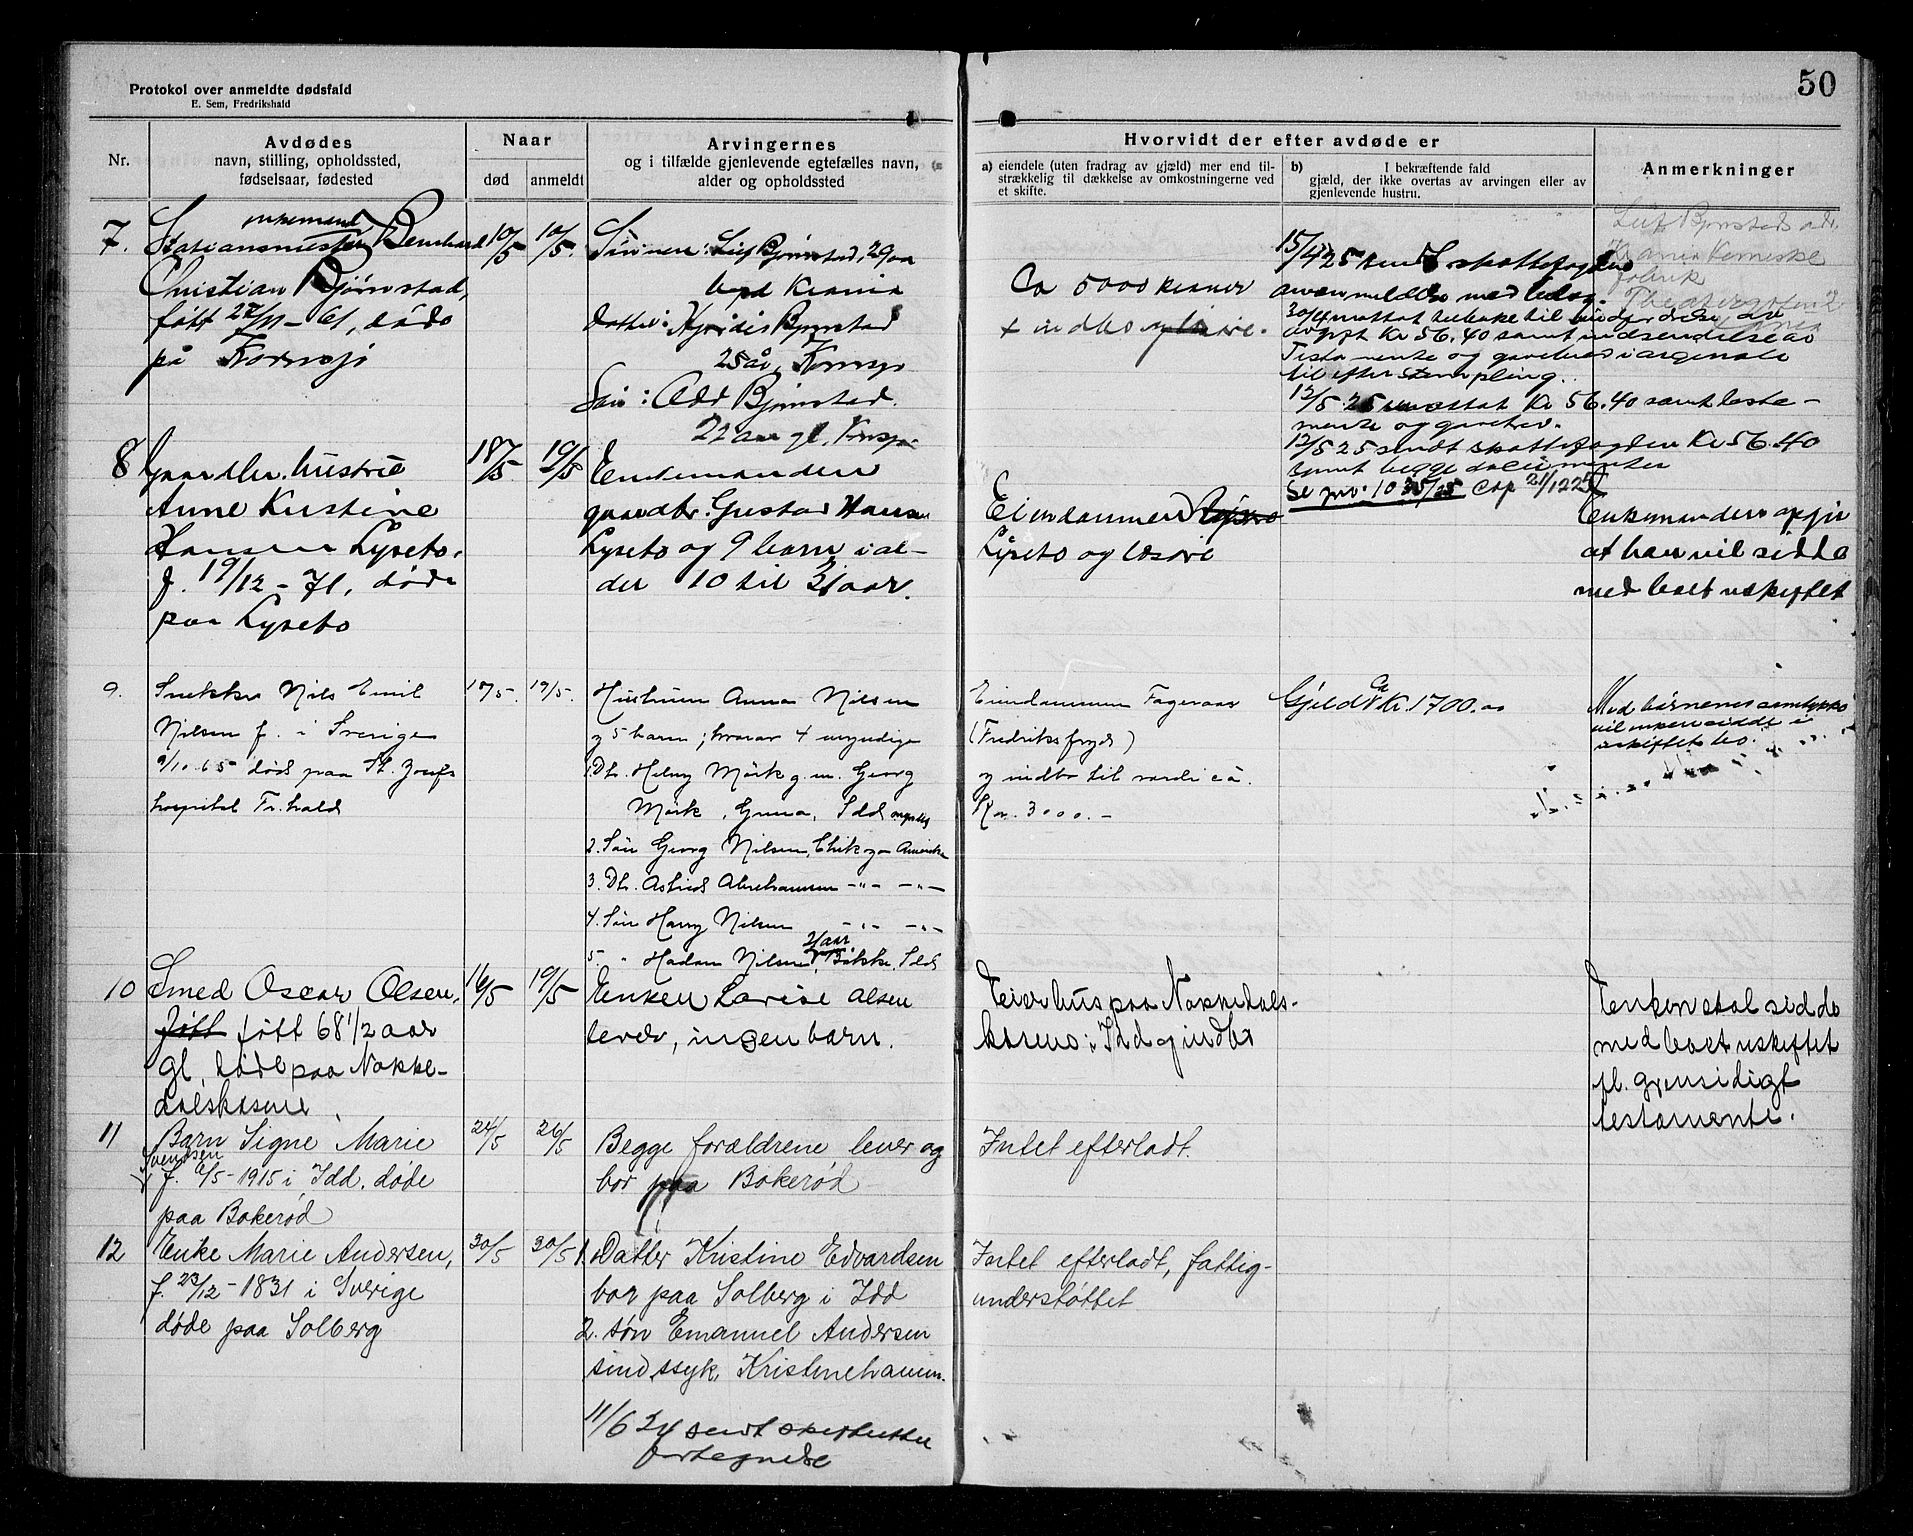 50
Protokol over anmeldte dødsfald
E. Sem, Fredrikshald
Nr.
Avdødes
navn, stilling, opholdssted,
fødselsaar, fødested
Naar
død
anmeldt
Arvingernes
og i tilfælde gjenlevende egtefælles navn,
alder og opholdssted
Hvorvidt der efter avdøde er
a) eiendele (uten fradrag av gjæld) mer end til-
strækkelig til dækkelse av omkostningerne ved
et skifte.
b) I bekræftende fald
gjæld, der ikke overtas av arvingen eller av
gjenlevende hustru.
Anmerkninger
7.
enkemand
Stationsmester Bernhard
Christian Bjørnstad,
født 22/11-61, døde
på Kornsjø
10/5
10/5.
Sønnen: Leif Bjørnstad, 29 aar
Krania
datter: Hjørdis Bjørnstad
25 år, Kornsjø
Søn: Odd Bjørnstad.
22 aar gl. Kornsjø
Ca 5000 kroner
+ indbo
15/4 25 skattefogden
med bilag.
Kr 56.40 samt indsendelse av
Testamente og gavebrev i originale
til efterstempling.
12/5 25 mottat Kr 56.40 samt testa-
mente og gavebrev.
12/5 25 sendt skattefogden Kr 56.40
samt begge dokumenter
Leif Bjørnstads adr.
Krania Kemiske
fabrik
8
Gaardbr. hustru
Anne Kristine
Hansen Lyseto,
f. 19/12-71, døde
paa Lyseto
18/5
19/5
Enkemanden
gaardbr. Gustav Hansen
Lyseto og 9 barn i al-
der 10 til 31 aar.
Eiendommen
Lyseto og løsøre
Enkemanden opgir
at han vil sidde
med boet uskiftet
9.
Snekker Nils Emil
Nilsen f. i Sverige
9/10 65 død paa St. Josefs
hospital Fr.hald
17/5.
19/5.
Hustruen Anna Nilsen
og 5 barn; hvorav 4 myndige
1. Dtr. Helny Mörk g. m. Georg
Mörk, , Idd
2. Søn Georg Nilsen, Chikago Amerika
3. Dtr. Astrid Abrahamsen -"- -"-
4. Søn Harry Nilsen -"- -"-
21 aar
5. " Nilsen, Bakke, Idd
Eiendommen Fageraas
(Fredriksfryd)
og indbo til værdi ca.
Kr. 3000.-
Gjeld Ca Kr. 1700.00
Med børnenes samtykke
vil enken sidde i
uskiftet bo.
10
Smed Oscar Olsen,
født født 68 1/2 aar
gl, døde paa Nokke-
dalskasene.
16/5
19/5
Enken Lovise Olsen
lever, ingen barn.
Eier hus paa Nokkedals-
kasene i Idd og indbo
Enken skal sidde
med boet uskiftet
fl. gjensidigt
testamente.
11
Barn Signe Marie
Svendsen
f. 6/5-1915 i Idd. døde
paa Bakerød
24/5
26/5
Begge forældrene lever og
bor paa Bokerød
Intet efterladt.
12
Enke Marie Andersen,
f. 23/12-1831 i Sverige
døde paa Solberg
30/5
30/5
1. Datter Kristine Edvardsen
bor paa Solberg i Idd
2. søn Emanuel Andersen
sindssyk, Kristinehamn.
Intet efterladt, fattig-
understøttet
11/6 24 sendt
fortegnelse